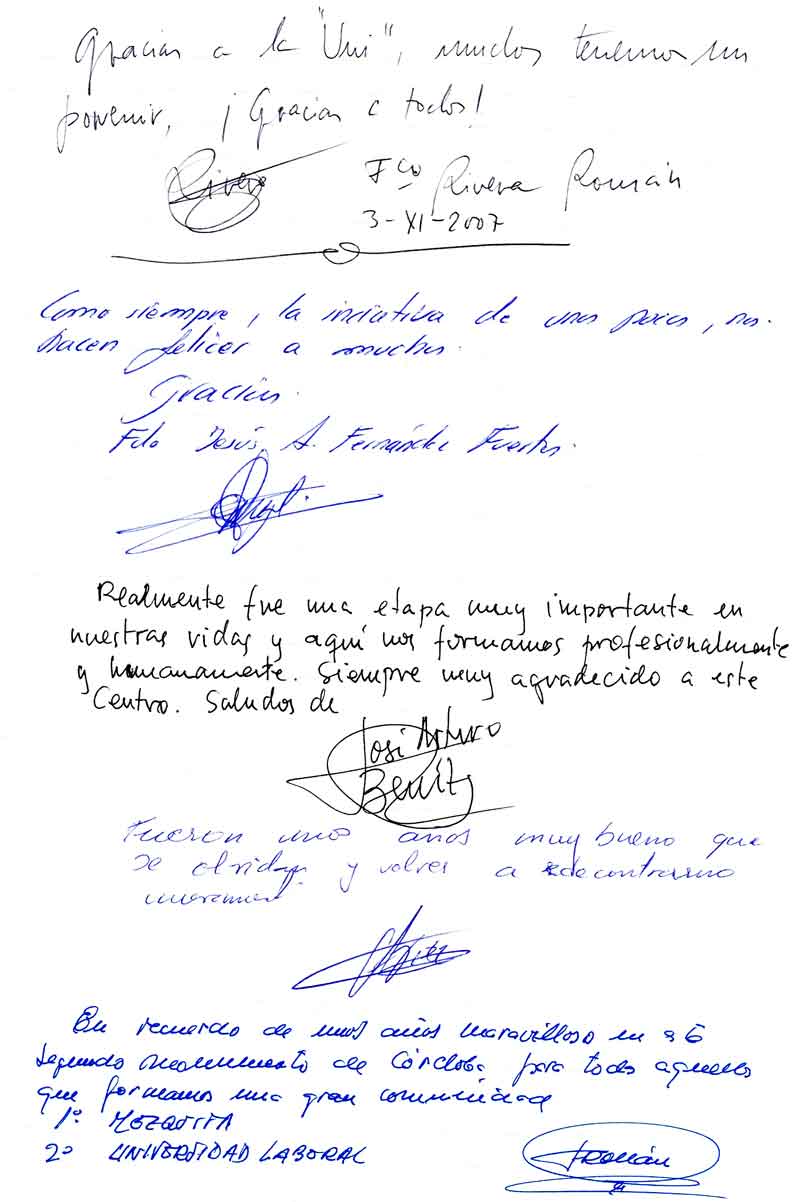 Gracias a la "Uni", muchos tenemos un
porvenir, ¡Gracias a todos!
Rivera
Fco Rivera Román
3-XI-2007
Como siempre, la iniciativa de unos pocos, nos
hacen felices a muchos.
Gracias.
Fdo Jesús A. Fernández Fuertes.
Realmente fue una etapa muy importante en
nuestras vidas y aquí nos formamos profesionalmente
y humanamente. Siempre muy agradecido a este
Centro. Saludos de
José Arturo
Benítz
Fueron unos años muy bueno que
se olvidan y volver a
En recuerdo de unos años maravilloso en
segundo monumento de Córdoba para todos aquellos
que formamos una gran comunidad
1º MEZQUITA
2º UNIVERSIDAD LABORAL
Román